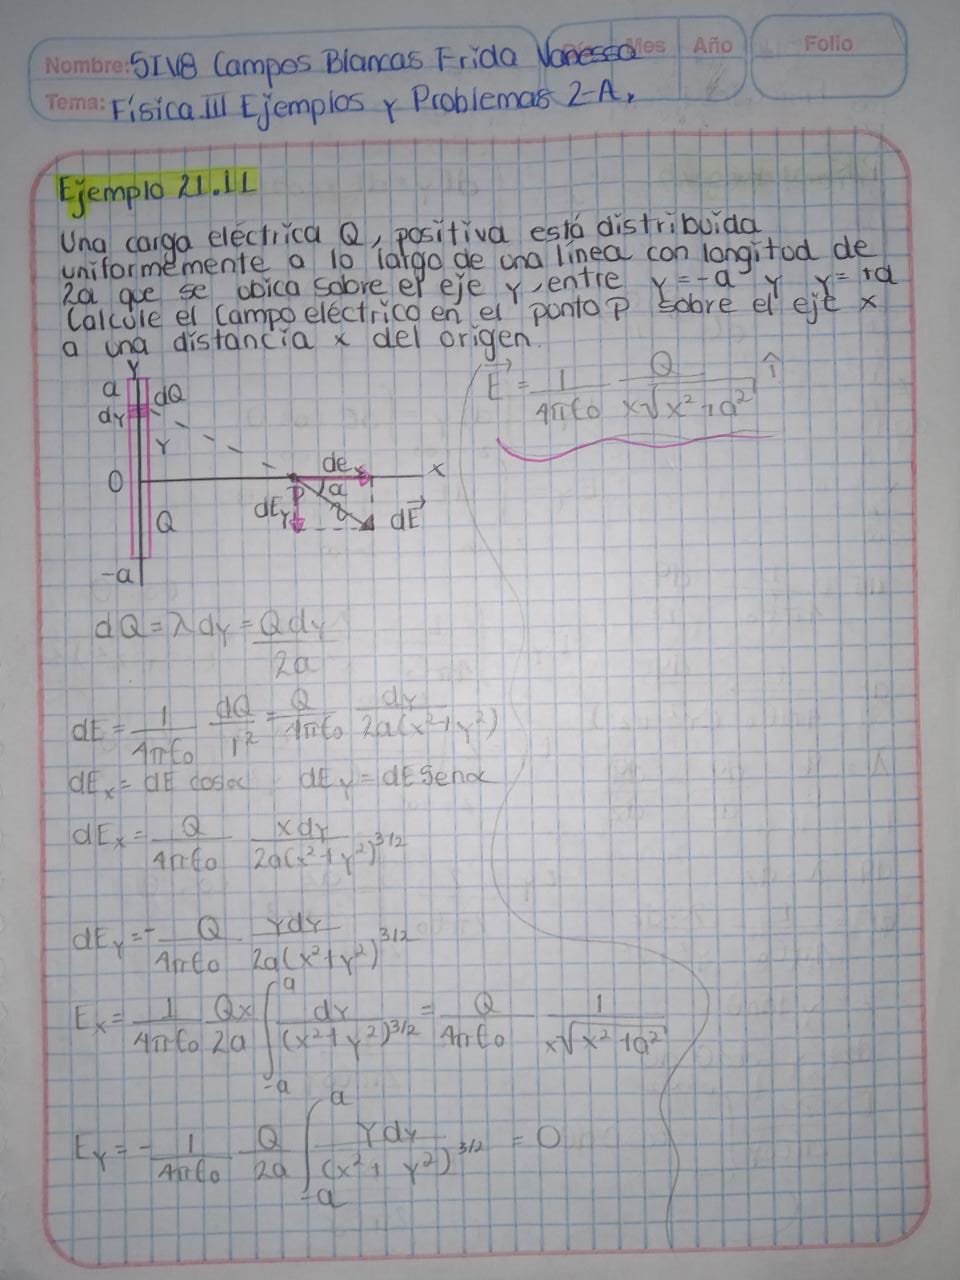 Nombre: 5IV8 Campos Blancas Frida Vanessa Mes Año Folio
Tema: Física III Ejemplos y Problemas 2-A.
Ejemplo 21.11
Una carga eléctrica Q, positiva está distribuida
uniformemente a lo largo de una línea con longitud de
2a que se ubica sobre el eje Y, entre Y=-a y Y=+a
Calcule el campo eléctrico en el punto P sobre el eje x
a una distancia x del origen.
E⃗ = 1/4πε0 Q/x√x²+a² î
Y
a dQ
dY
Y
0 dex x
P α
dEY dE⃗
Q
-a
dQ = λdY = QdY/2a
dE = 1/4πε0 dQ/r² = Q/4πε0 dY/2a(x²+Y²)
dEx = dE cosα dEY = dE Senα
dEx = Q/4πε0 xdY/2a(x²+Y²)^3/2
dEY = - Q/4πε0 YdY/2a(x²+Y²)^3/2
Ex = 1/4πε0 Qx/2a ∫_-a^a dY/(x²+Y²)^3/2 = Q/4πε0 1/x√x²+a²
EY = - 1/4πε0 Q/2a ∫_-a^a YdY/(x²+Y²)^3/2 = 0